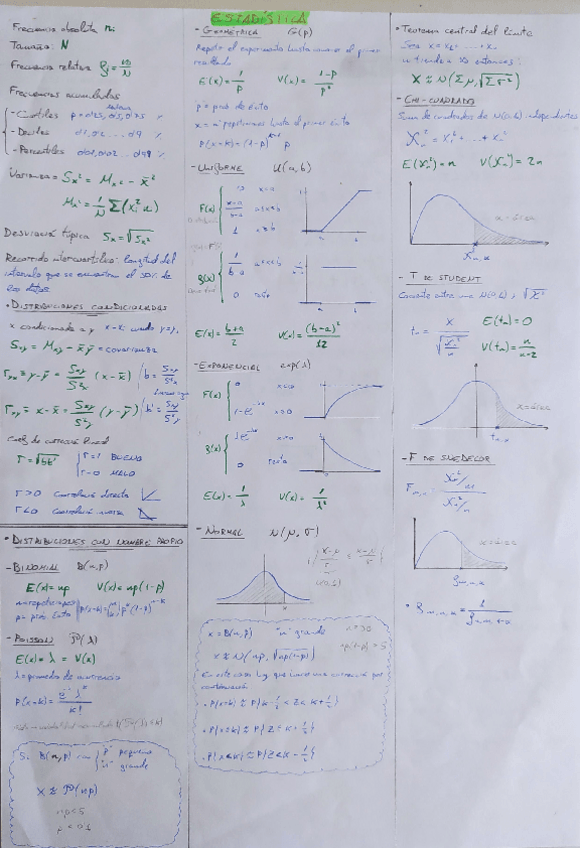 ESTADÍSTICA
Frecuencia absoluta ni
Tamaño: N
Frecuencia relativa fi = ni/N
Frecuencias acumuladas
- Cuartiles p = 0'25, 0'5, 0'75 %
- Deciles 0'1, 0'2 ... 0'9 %
- Percentiles 0'01, 0'02 ... 0'99 %
Varianza = Sx² = Mx² - x̄²
Mx² = 1/N Σ(xi² ni)
Desviación típica Sx = √Sx²
Recorrido intercuartílico: longitud del
intervalo que se encuentra el 50% de
los datos.
• DISTRIBUCIONES CONDICIONADAS
x condicionada a y
Sxy = Mxy - x̄ȳ = covarianza
ryx = y-ȳ = Sxy/S²x (x-x̄) | b = Sxy/S²x
rxy = x-x̄ = Sxy/S²y (y-ȳ) | b' = Sxy/S²y
Coef. de correlación lineal
r = √bb' { r=1 BUENO
r=0 MALO
r>0 Correlación directa
r<0 Correlación inversa
• DISTRIBUCIONES CON NOMBRE PROPIO
- BINOMIAL B(n,p)
E(x) = np V(x) = np(1-p)
n = repeticiones
p = prob. Éxito P(x=k) = (n k) p^k (1-p)^n-k
- POISSON P(λ)
E(x) = λ = V(x)
λ = promedio de ocurrencia
P(x=k) = e^-λ λ^k / k!
Si B(n,p) con { "p" pequeño
"n" grande
x ≈ P(np)
np<5
p<0'1
- GEOMÉTRICA G(p)
Repetir el experimento hasta conseguir el primer
resultado
E(x) = 1/p V(x) = 1-p/p²
p = prob de éxito
x = nº repeticiones hasta el primer éxito
P(x=k) = (1-p)^k-1 p
- UNIFORME U(a,b)
F(x) { 0 x<a
x-a/b-a a<x<b
1 x>b
f(x) { 1/b-a a<x<b
0 resto
E(x) = b+a/2 V(x) = (b-a)²/12
- EXPONENCIAL exp(λ)
F(x) { 0 x<0
1-e^-λx x>0
f(x) { λe^-λx x>0
0 resto
E(x) = 1/λ V(x) = 1/λ²
- NORMAL N(μ,σ)
x = B(n,p) "n" grande n>30
np(1-p)>5
x ≈ N(np, √np(1-p))
En este caso hay que hacer una corrección por
continuidad
• P(x=k) ≈ P{k-½ < Z < k+½}
• P(x≤k) ≈ P{Z < k+½}
• P{x<k} ≈ P{Z<k-½}
• Teorema central del límite
Sea x = x1 + ... + xn
n tiende a ∞ entonces:
x ≈ N(Σμ, √Σσ²)
- CHI-CUADRADO
Suma de cuadrados de N(0,1) independientes
Xn² = x1² + ... + xn²
E(Xn²) = n V(Xn²) = 2n
- T DE STUDENT
Cociente entre una N(0,1) y √X²
tn = x/√(Xn²/n) E(tn) = 0
V(tn) = n/n-2
- F DE SNEDECOR
Fm,n = Xm²/m / Xn²/n
fm,n,α